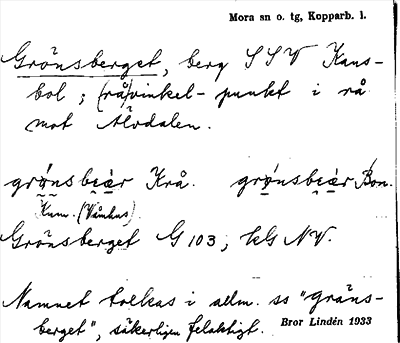 Mora sn o. tg, Kopparb. l.
Gränsberget, berg SSV Kans-
bol; (rå)vinkel-punkt i rå
mot Älvdalen.
Krå. Bon.
Kum. (Våmhus)
Gränsberget G 103, kG NV.
Namnet tolkas i allm. ss "gräns-
berget", säkerligen felaktigt.
Bror Lindén 1933